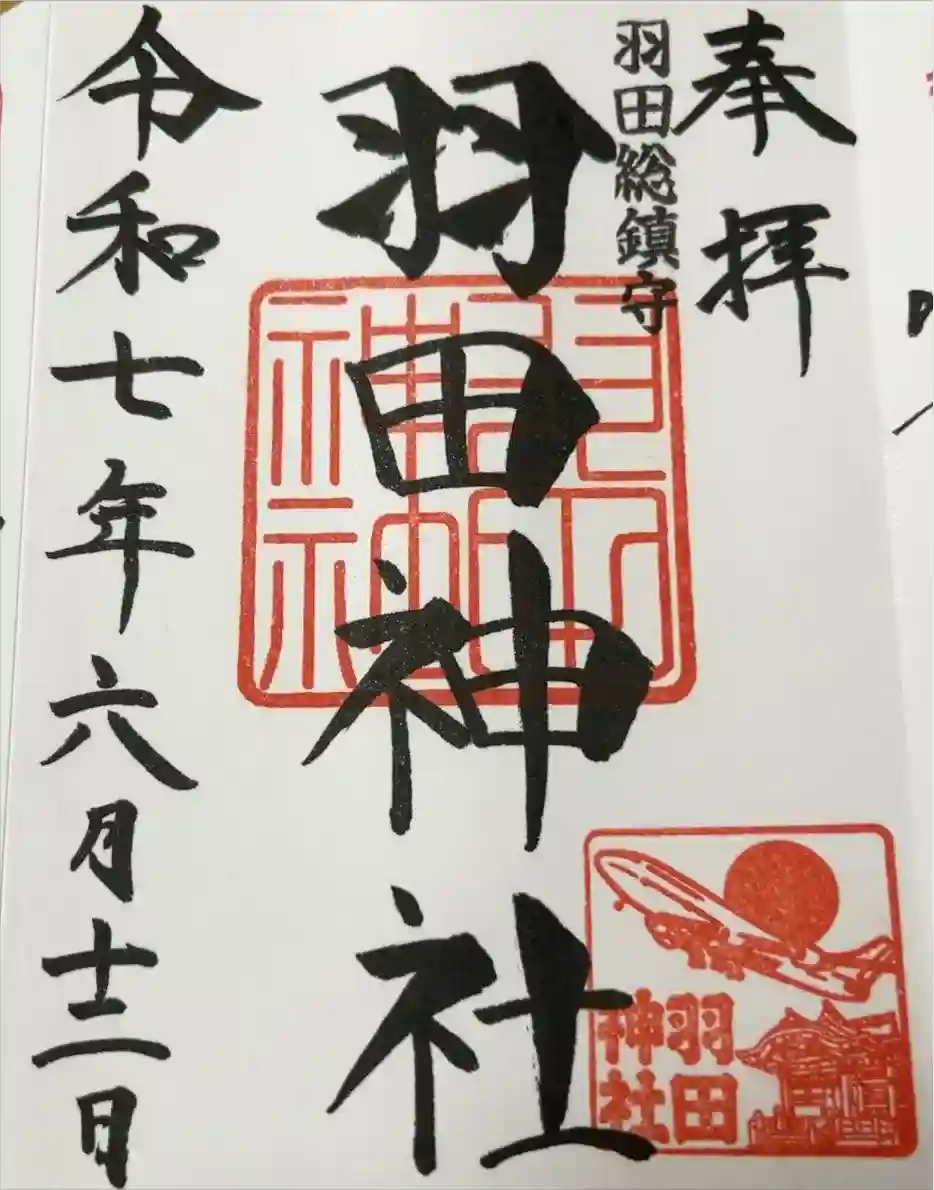 奉拝
羽田総鎮守
羽田神社
令和七年六月十二日
羽田
神社